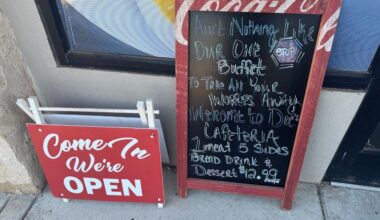 Coca-Cola
Ain't Nothing
Our One
Buffet
STOP
To Take All Your
Worries Away
Welcome to Dee's
CAFETERIA
1 meat 5 sides
Bread Drink &
Dessert $12.99
Come In
We're
OPEN